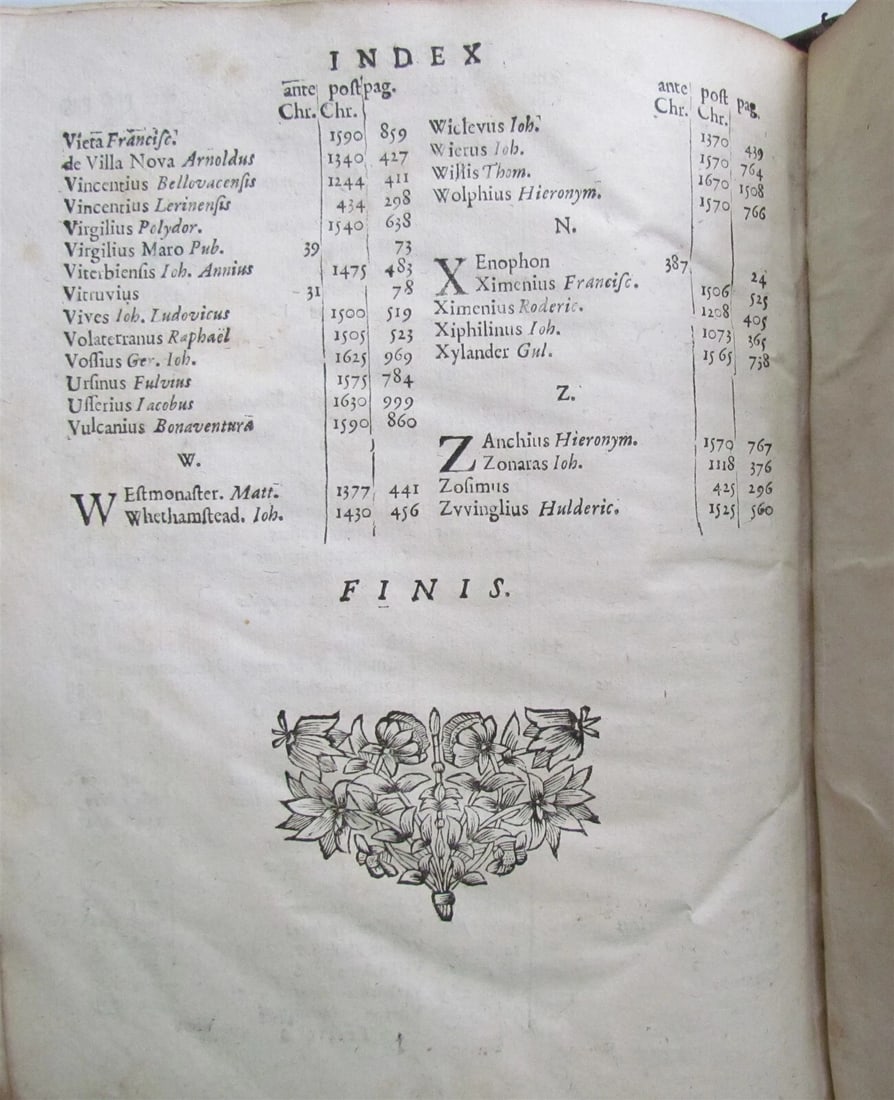 INDEX
ante post pag.
Chr. Chr.
Vieta Francisc. 1590 859
de Villa Nova Arnoldus 1340 427
Vincentius Bellovacensis 1244 411
Vincentius Lerinensis 434 298
Virgilius Polydor. 1540 638
Virgilius Maro Pub. 39 73
Viterbiensis Ioh. Annius 1475 483
Vitruvius 31 78
Vives Ioh. Ludovicus 1500 519
Volaterranus Raphaël 1505 523
Vossius Ger. Ioh. 1625 969
Ursinus Fulvius 1575 784
Usserius Iacobus 1630 999
Vulcanius Bonaventura 1590 860
W.
WEstmonaster. Matt. 1377 441
Whethamstead. Ioh. 1430 456
ante post pag.
Chr. Chr.
Wiclevus Ioh. 1370 439
Wierus Ioh. 1570 764
Willis Thom. 1670 1508
Wolphius Hieronym. 1570 766
N.
XEnophon 387 24
Ximenius Francisc. 1506 525
Ximenius Roderic. 1208 405
Xiphilinus Ioh. 1073 365
Xylander Gul. 1565 738
Z.
ZAnchius Hieronym. 1570 767
Zonaras Ioh. 1118 376
Zosimus 425 296
Zvvinglius Hulderic. 1525 560
FINIS.